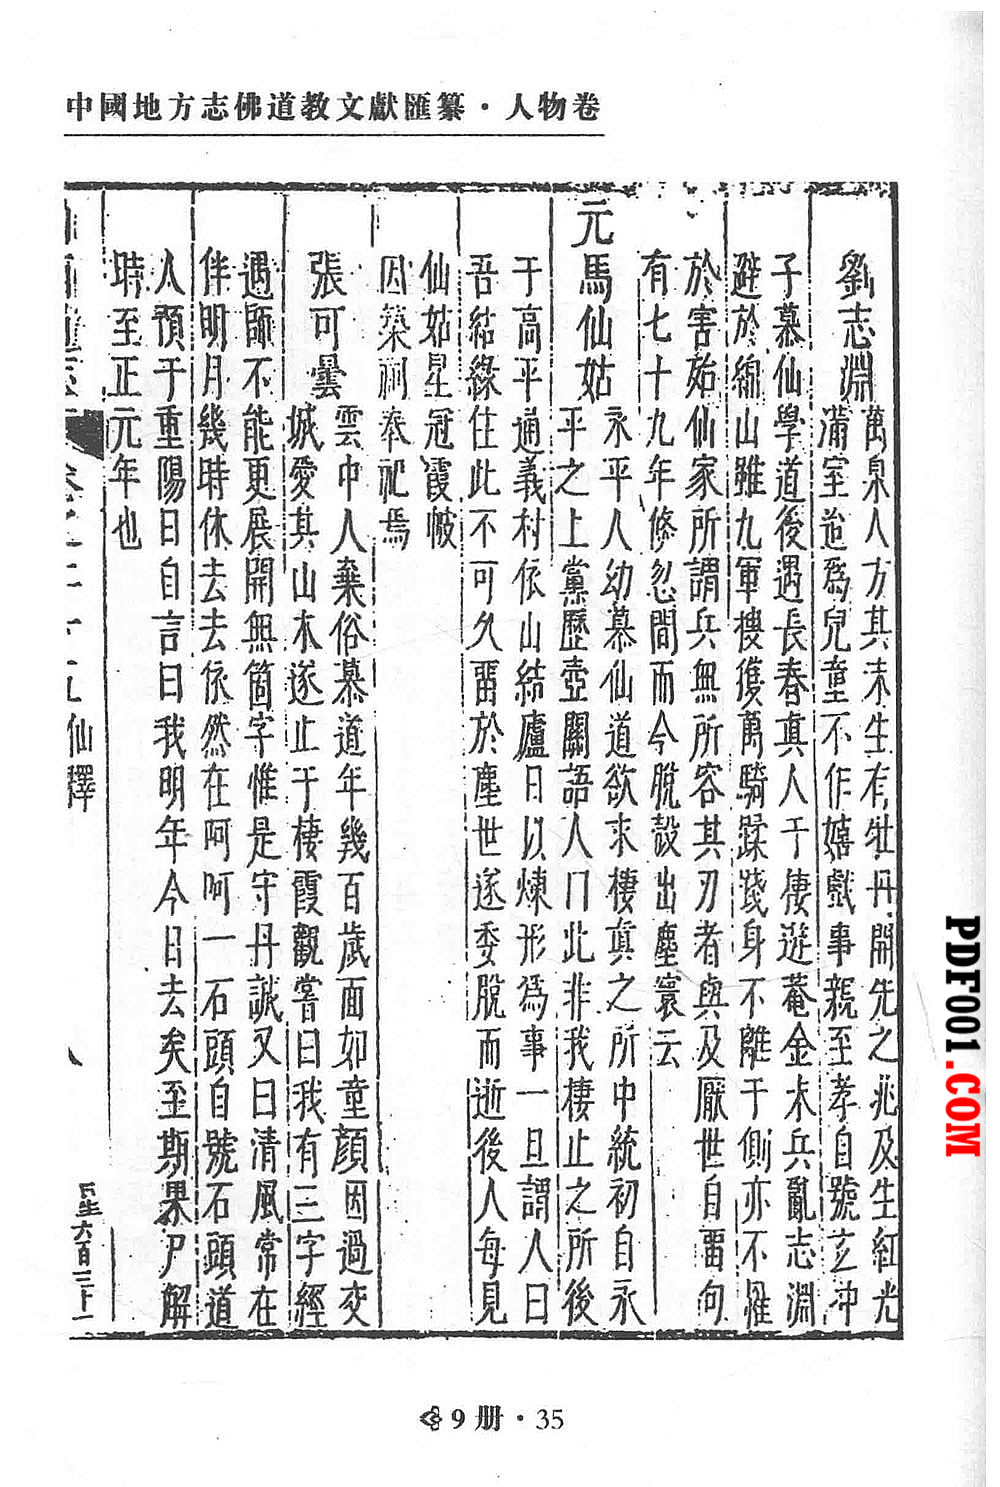 中國地方志佛道教文獻匯纂·人物卷
劉志淵
萬泉人方其未生有牡丹開先之兆及生紅光
滿室迨爲兒童不作嬉戲事親至孝自號玄冲
子慕仙學道後遇長春真人于棲遊菴金末兵亂志淵
避於綿山雖九軍搜獲萬騎蹂踐身不離于側亦不罹
於害始仙家所謂兵無所容其刃者與及厭世自畱句
有七十九年修忽間而今脫殼出塵寰云
元
馬仙姑
永平人幼慕仙道欲求棲真之所中統初自永
平之上黨歷壺關語人曰此非我棲止之所後
于高平通義村依山結廬日以煉形爲事一旦謂人曰
吾結緣住此不可久畱於塵世遂委脫而逝後人每見
仙姑星冠霞帔
因築祠奉祀焉
張可曇
雲中人棄俗慕道年幾百歲面如童顏因過交
城愛其山水遂止于棲霞觀嘗曰我有三字經
遇師不能更展開無箇字惟是守丹誠又曰清風常在
伴明月幾時休去去依然在呵呵一石頭自號石頭道
人預于重陽日自言曰我明年今日去矣至期果尸解
時至正元年也
卷之二十五 仙釋
八
六百三十一
9册·35
PDF001.COM